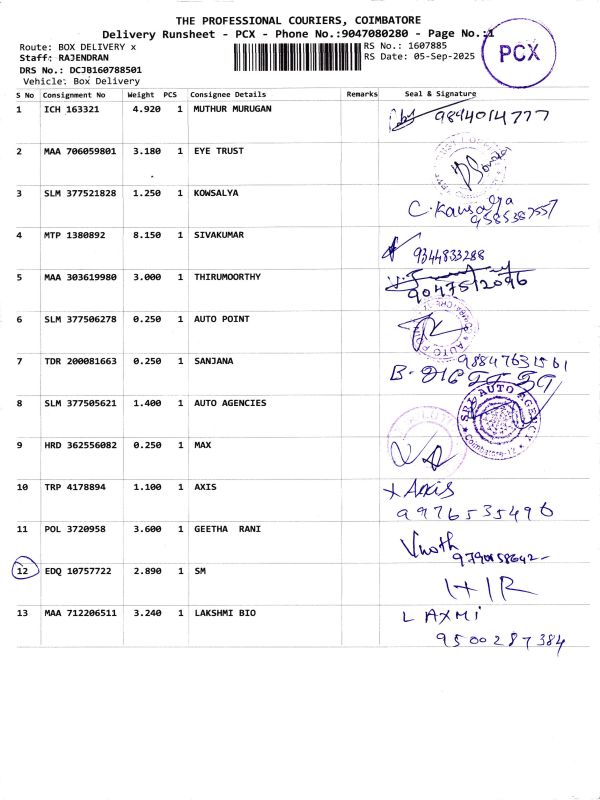 THE PROFESSIONAL COURIERS, COIMBATORE
Delivery Runsheet - PCX - Phone No.:9047080280 - Page No.:1
PCX
Route: BOX DELIVERY x
RS No.: 1607885
Staff: RAJENDRAN
RS Date: 05-Sep-2025
DRS No.: DCJB160788501
Vehicle: Box Delivery
S No Consignment No Weight PCS Consignee Details Remarks Seal & Signature
1 ICH 163321 4.920 1 MUTHUR MURUGAN 9894014777
2 MAA 706059801 3.180 1 EYE TRUST
3 SLM 377521828 1.250 1 KOWSALYA C.Kawsalya
4 MTP 1380892 8.150 1 SIVAKUMAR 9344833288
5 MAA 303619980 3.000 1 THIRUMOORTHY 9047512096
6 SLM 377506278 0.250 1 AUTO POINT
7 TDR 200081663 0.250 1 SANJANA 98847631561
8 SLM 377505621 1.400 1 AUTO AGENCIES SRI AUTO AGENCY Coimbatore-12
9 HRD 362556082 0.250 1 MAX
10 TRP 4178894 1.100 1 AXIS x Axis
9976535496
11 POL 3720958 3.600 1 GEETHA RANI Vinoth
12 EDQ 10757722 2.890 1 SM
13 MAA 712206511 3.240 1 LAKSHMI BIO LAXMI
9500287384